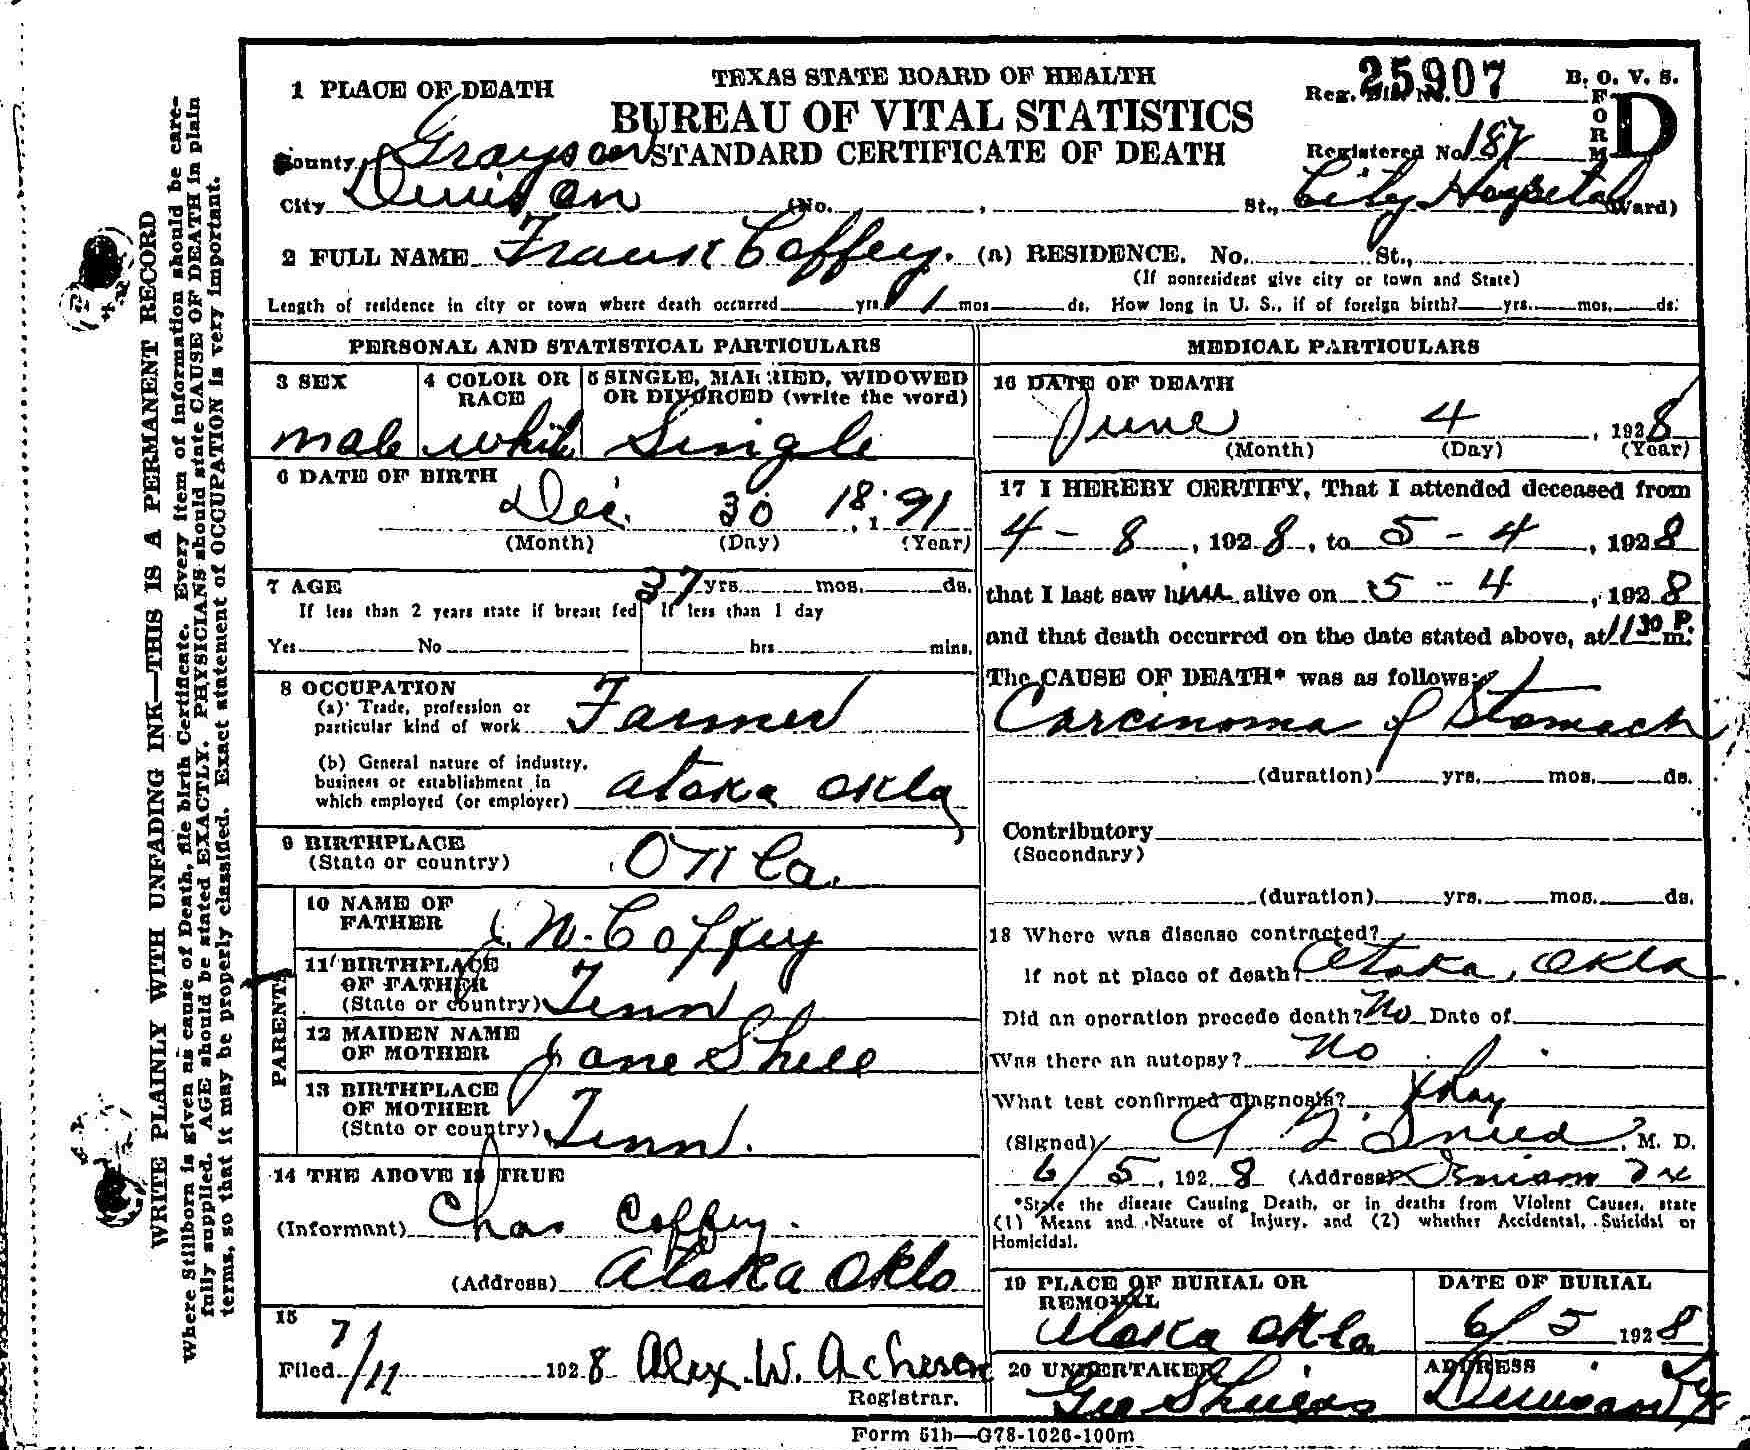 WRITE PLAINLY WITH UNFADING INK—THIS IS A PERMANENT RECORD
Where Stillborn is given as cause of Death, file birth Certificate. Every item of information should be care-
fully supplied. AGE should be stated EXACTLY. PHYSICIANS should state CAUSE OF DEATH in plain
terms, so that it may be properly classified. Exact statement of OCCUPATION is very important.
TEXAS STATE BOARD OF HEALTH
BUREAU OF VITAL STATISTICS
STANDARD CERTIFICATE OF DEATH
Reg. Dis. No. 25907
B. O. V. S.
FORM D
Registered No. 187
1 PLACE OF DEATH
County Grayson
City Denison (No. , St., City Hospital Ward)
2 FULL NAME Frank Coffey. (a) RESIDENCE. No. St.,
(If nonresident give city or town and State)
Length of residence in city or town where death occurred yrs. 1 mos ds. How long in U. S., if of foreign birth? yrs. mos. ds.
PERSONAL AND STATISTICAL PARTICULARS
3 SEX
male
4 COLOR OR RACE
white
5 SINGLE, MARRIED, WIDOWED
OR DIVORCED (write the word)
Single
6 DATE OF BIRTH
Dec. 30 18 , 1 91
(Month) (Day) (Year)
7 AGE 37 yrs. mos. ds.
If less than 2 years state if breast fed If less than 1 day
Yes No hrs mins.
8 OCCUPATION
(a) Trade, profession or
particular kind of work Farmer
(b) General nature of industry,
business or establishment in
which employed (or employer) Atoka Okla
9 BIRTHPLACE
(State or country) Okla.
PARENTS
10 NAME OF
FATHER J. W. Coffey
11 BIRTHPLACE
OF FATHER
(State or country) Tenn
12 MAIDEN NAME
OF MOTHER Jane
13 BIRTHPLACE
OF MOTHER
(State or country) Tenn.
14 THE ABOVE IS TRUE
(Informant) Chas Coffey.
(Address) Atoka Okla
15
Filed 7/11 1928 Alex. W. Acheson
Registrar.
MEDICAL PARTICULARS
16 DATE OF DEATH
June 4 , 1928
(Month) (Day) (Year)
17 I HEREBY CERTIFY, That I attended deceased from
4 - 8 , 1928, to 5 - 4 , 1928
that I last saw him alive on 5 - 4 , 1928
and that death occurred on the date stated above, at 11 30 P. m.
The CAUSE OF DEATH* was as follows:
Carcinoma of Stomach
(duration) yrs. mos. ds.
Contributory
(Secondary)
(duration) yrs. mos. ds.
18 Where was disease contracted?
If not at place of death? Atoka, Okla
Did an operation precede death? No Date of
Was there an autopsy? No
What test confirmed diagnosis? X Ray
(Signed) Sneed, M. D.
6/5, 1928 (Address) Denison Tx
*State the disease Causing Death, or in deaths from Violent Causes, state
(1) Means and Nature of Injury, and (2) whether Accidental, Suicidal or
Homicidal.
19 PLACE OF BURIAL OR
REMOVAL
Atoka Okla.
DATE OF BURIAL
6/5 1928
20 UNDERTAKER
Geo Shields
ADDRESS
Denison Tex
Form 51b—G78-1026-100m